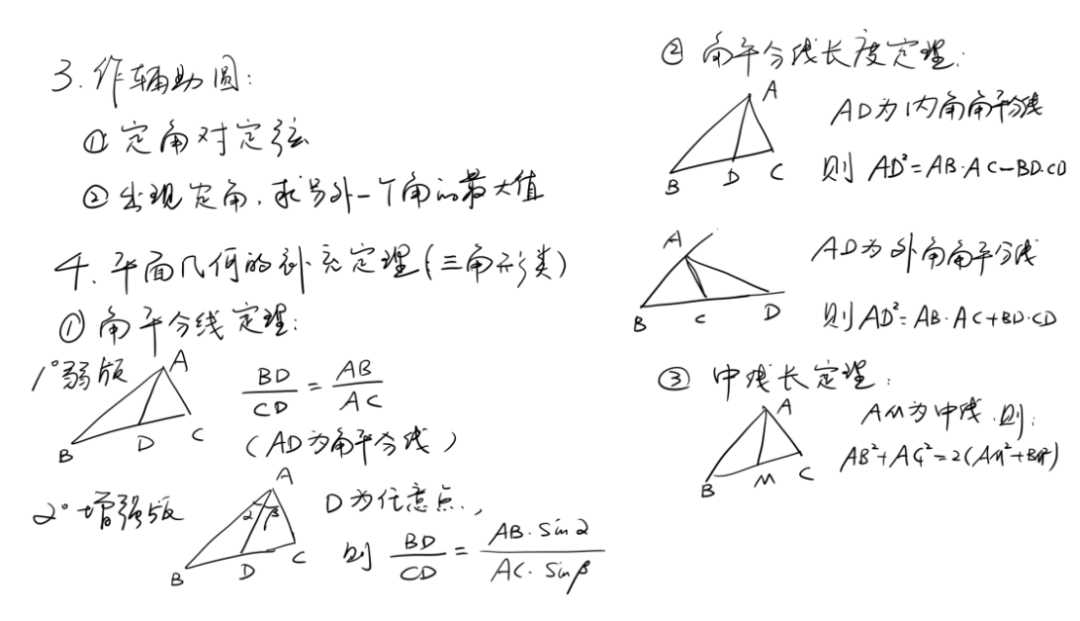 3. 作辅助圆:
① 定角对定弦
② 出现定角,求另外一个角的最大值
4. 平面几何的补充定理(三角形类)
① 角平分线定理:
1° 弱版
A
B
D
C
BD/CD = AB/AC
(AD为角平分线)
2° 增强版
A
α β
B
D
C
D为任意点,
则 BD/CD = AB·sinα/AC·sinβ
② 角平分线长度定理:
A
B
D
C
AD为内角角平分线
则 AD²=AB·AC-BD·CD
A
B
C
D
AD为外角角平分线
则 AD²=AB·AC+BD·CD
③ 中线长定理:
A
B
M
C
AM为中线,则:
AB²+AC²=2(AM²+BM²)